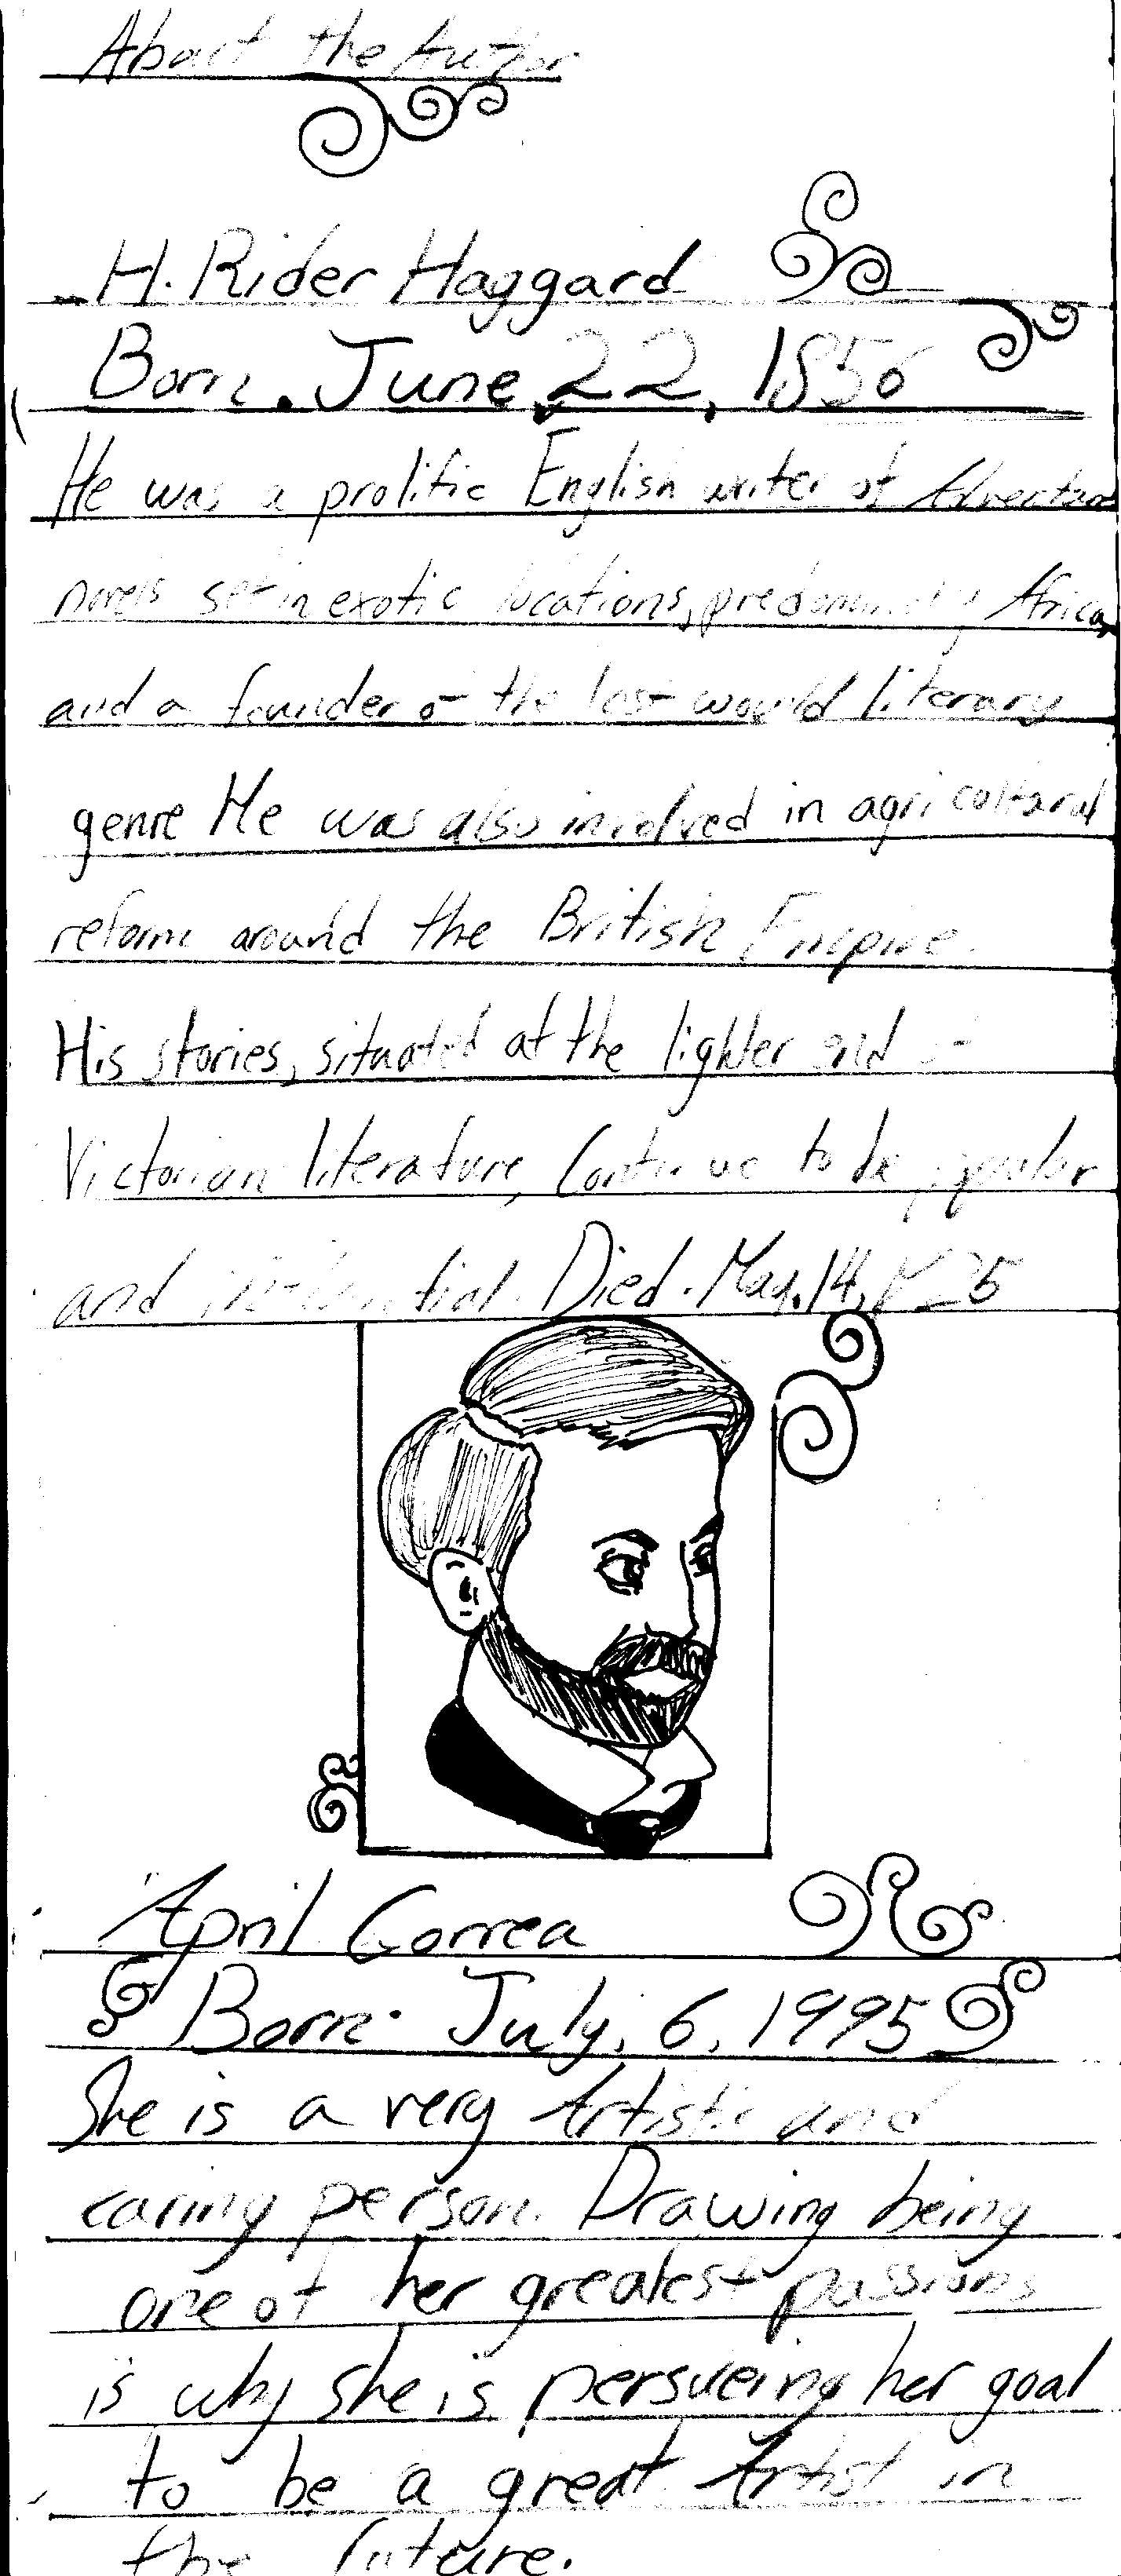 About the Author
H. Rider Haggard
Born. June 22, 1856
He was a prolific English writer of Adventure
novels set in exotic locations, predominatly Africa,
and a founder of the lost would literary
genre He was also involved in agricultural
reform around the British Empire.
His stories, situated at the lighter end of
Victorian literature, Continue to be popular
and influential. Died. May. 14, 1925
April Correa
Born. July, 6, 1995
She is a very Artistic and
caring person. Drawing being
one of her greatest passions
is why she is persueing her goal
to be a great Artist in
the future.